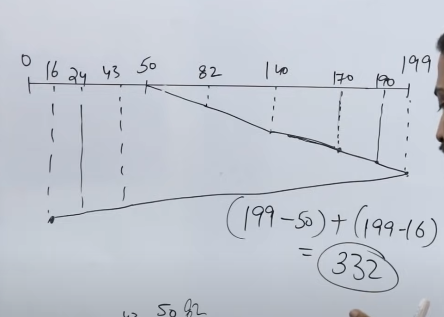 0 16 24 43 50 82 140 170 190 199
(199-50) + (199-16)
= 332
50 82